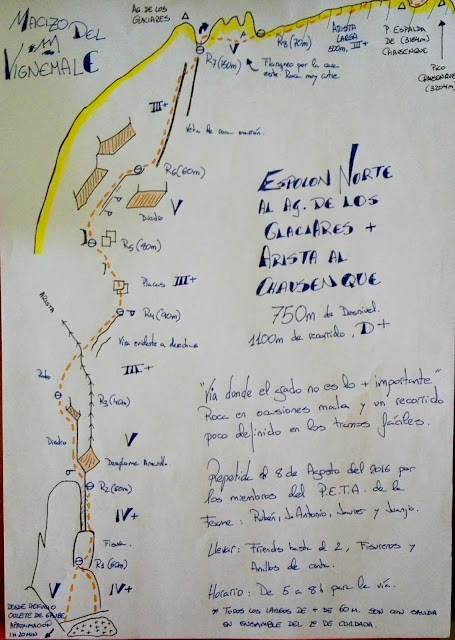 MACIZO DEL
VIGNEMALE
AG. DE LOS
GLACIARES
R8 (70m)
ARISTA
LARGA
500m, III+
P. ESPALDA
DE (3164m)
CHAUSENQUE
PICO
CHAUSENQUE
(3204m)
R7 (150m)
V
Flanqueo por la cara
este. Roca muy cutre
III+
Veta de roca marrón.
R6 (60m)
Diedro
V
R5 (80m)
Placas III+
R4 (90m)
ARISTA
Vía evidente a derechas
III+
R3 (40m)
Diedro
V
Desplome Amarillo
R2 (60m)
IV+
Fisura
R1 (60m)
V
IV+
DESDE REFUGIO
OULETE DE GAUBE
APROXIMACION
1H 20MIN
ESPOLON NORTE
AL AG. DE LOS
GLACIARES +
ARISTA AL
CHAUSENQUE
750m de Desnivel.
1100m de recorrido, D+
"Vía donde el grado no es lo + importante"
Roca en ocasiones mala y un recorrido
poco definido en los tramos fáciles.
Repetida el 8 de Agosto del 2016 por
los miembros del P.E.T.A. de la
Fexme: Rubén, J. Antonio, Javier y Juanjo.
Llevar: Friends hasta el 2, Fisureros y
Anillos de cinta.
Horario: De 5 a 8h para la vía.
* TODOS LOS LARGOS DE + DE 60M. SON CON SALIDA
EN ENSAMBLE DEL 2º DE CORDADA.